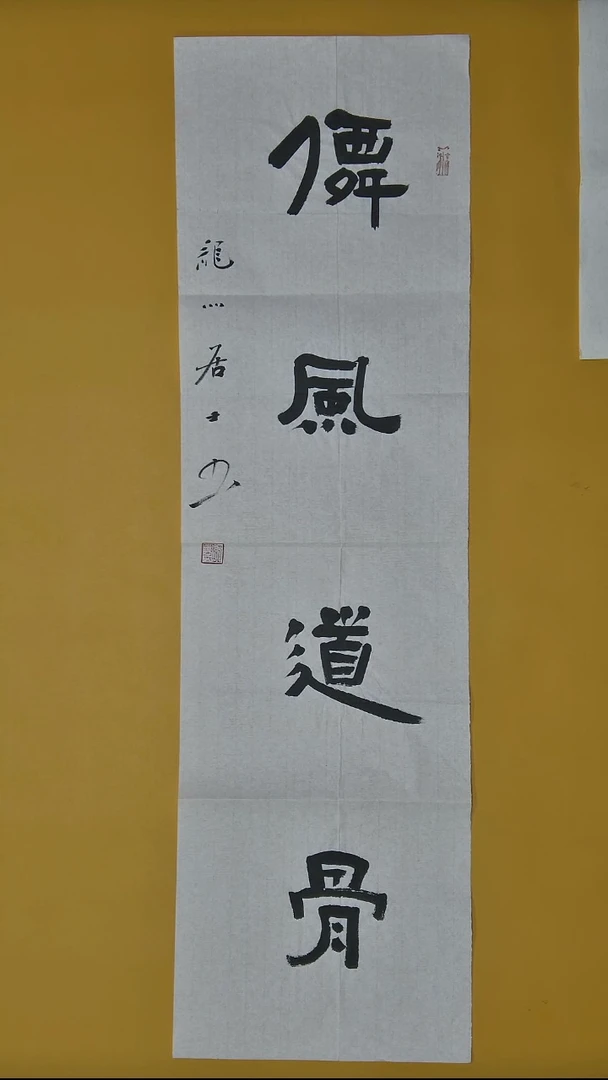 僊風道骨
龍山居士书